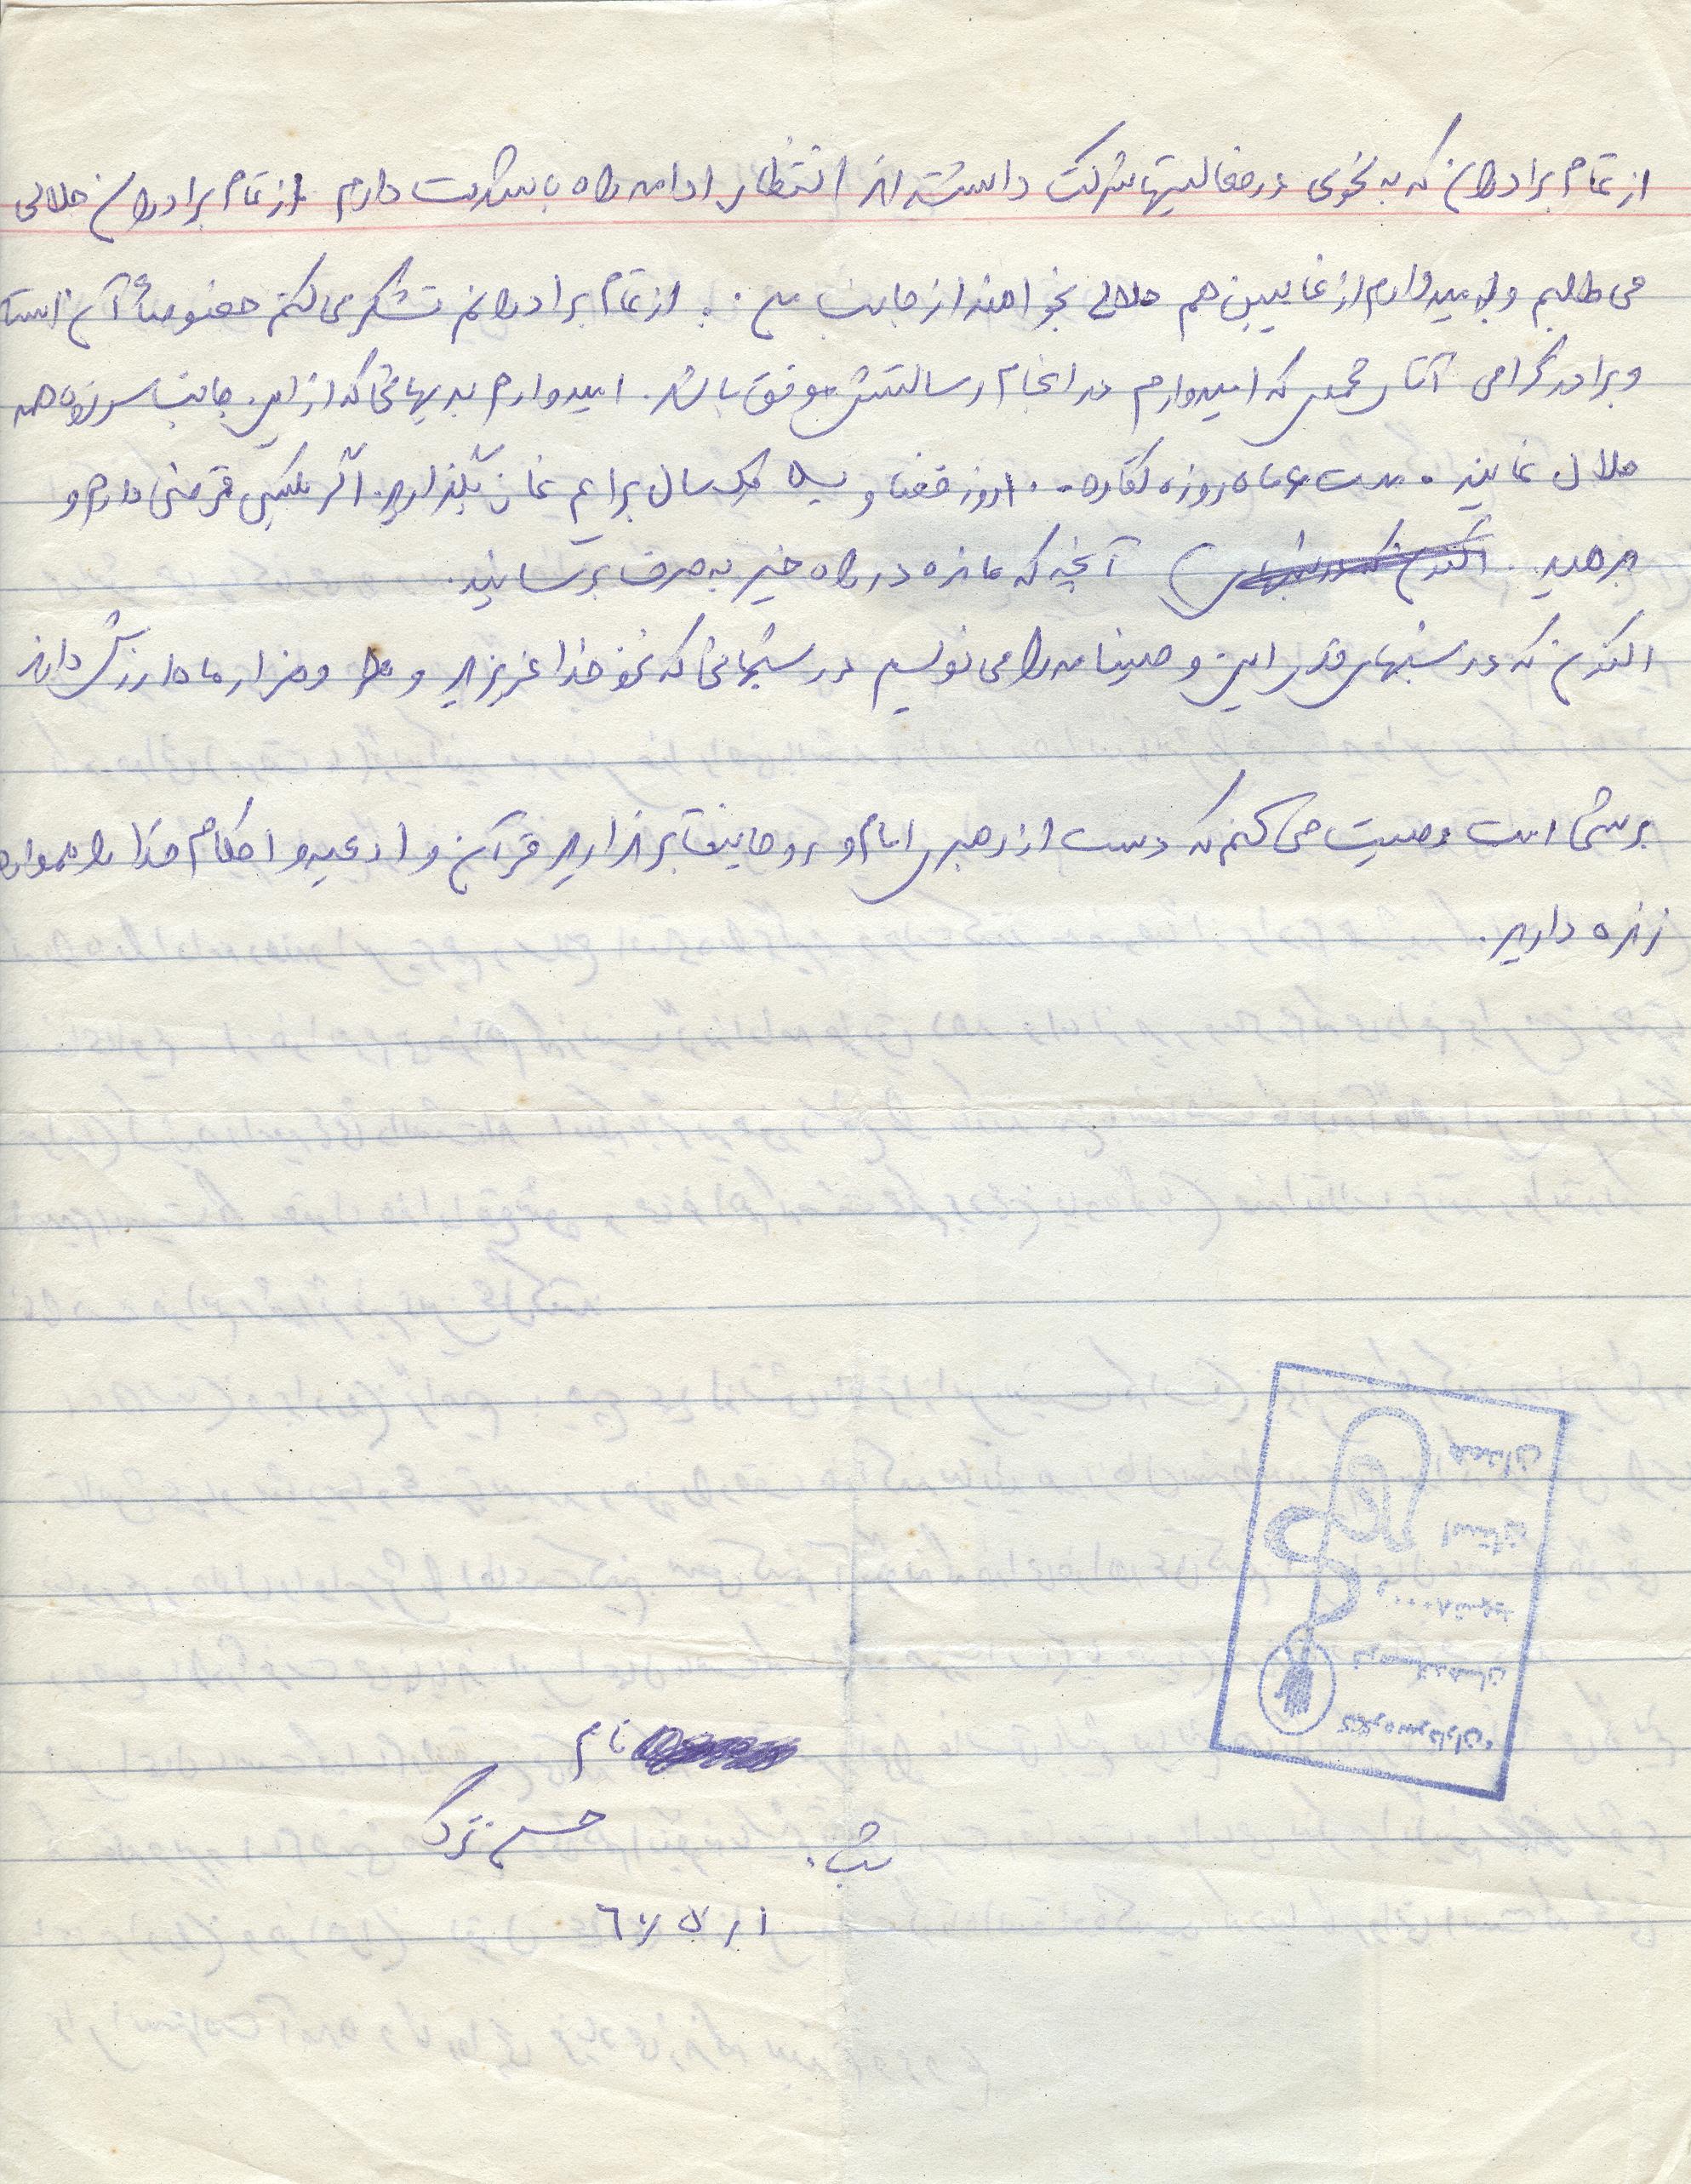 از تمام برادران که به نحوی در فعالیتها شرکت داشته اند انتظار ادامه راه باشدت دارم از تمام برادران حلالی
می طلبم و امیدوارم از غایبین هم حلالی بخواهند از جانب من . از تمام برادرانم تشکر می کنم خصوصاً آن استاد
و برادر گرامی آقای محمدی که امیدوارم در انجام رسالتش موفق باشد. امیدوارم بدیهائی که از این جانب سر زده همه
حلال نمایند . مدت ماه روزه کفاره ۱۰ روز قضا و یک سال برایم نماز بگذارید. اگر بکسی قرضی دارم و
بدهید. آنچه که مانده در راه خیر به مصرف برسانید.
اکنون که در شبهای قدر این وصیتنامه را می نویسم در شبهائی که نزد خدا عزیزند و هزار ماه ارزش دارند
بر شما امت وصیت می کنم که دست از رهبری امام و روحانیت برندارید قرآن و ادعیه و احکام خدا را همواره
زنده دارید.
نام
حسن ترک
شب
۶۲/۵/۱
کنگره سرداران
۸۰۰۰ شهید
استان
همدان